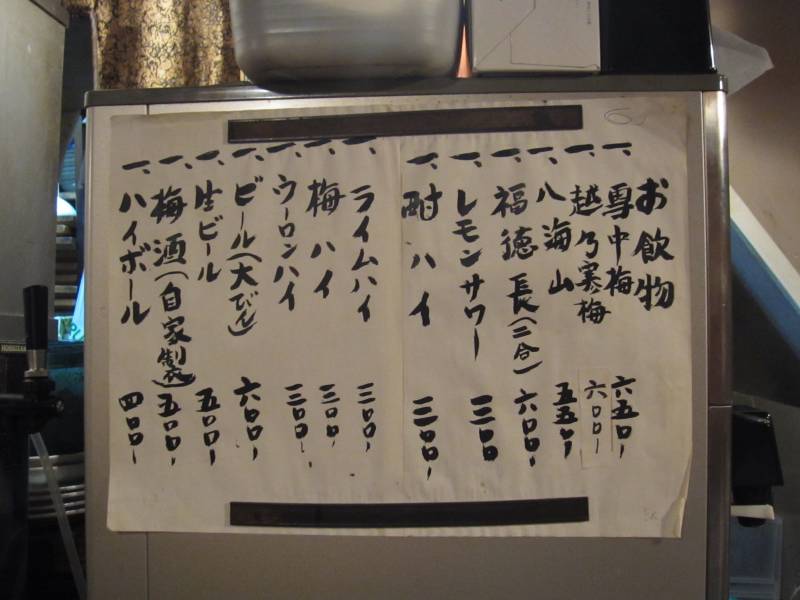 お飲物
一、雪中梅 六五〇-
一、越乃寒梅 六〇〇-
一、八海山 五五〇-
一、福徳長(二合) 六〇〇-
一、レモンサワー 三〇〇
一、酎ハイ 三〇〇-
一、ライムハイ 三〇〇-
一、梅ハイ 三〇〇-
一、ウーロンハイ 三〇〇-
一、ビール(大びん) 六〇〇-
一、生ビール 五〇〇-
一、梅酒(自家製) 五〇〇-
一、ハイボール 四〇〇-